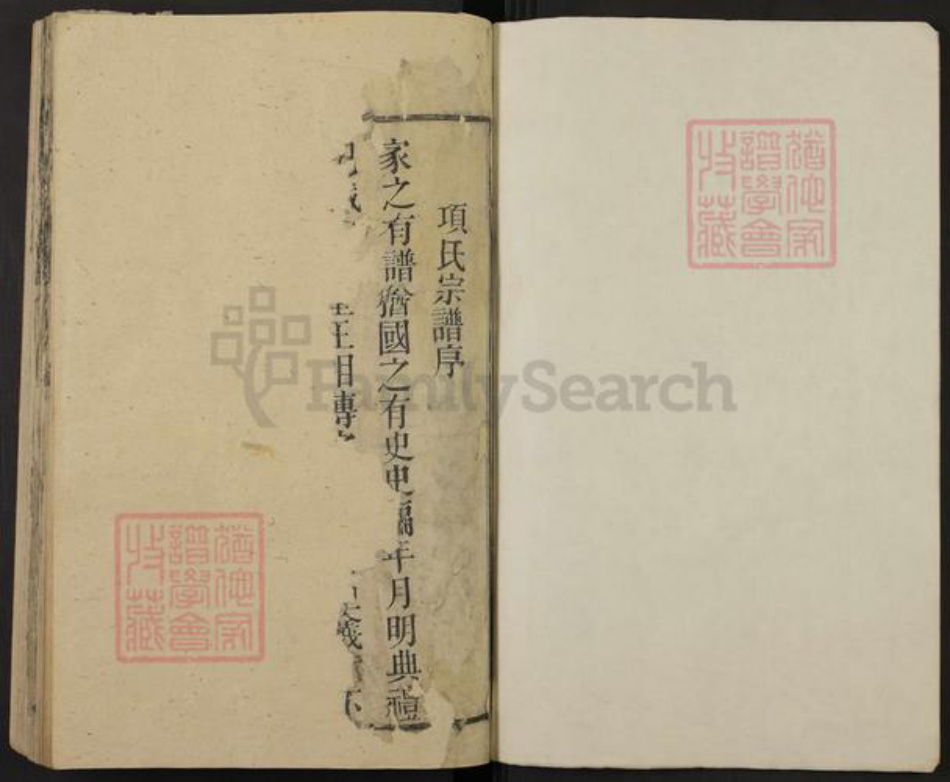 項氏宗譜序
家之有譜猶國之有史史編年月明典禮
目傳
猶他家
譜學會
收藏
猶他家
譜學會
收藏
FamilySearch